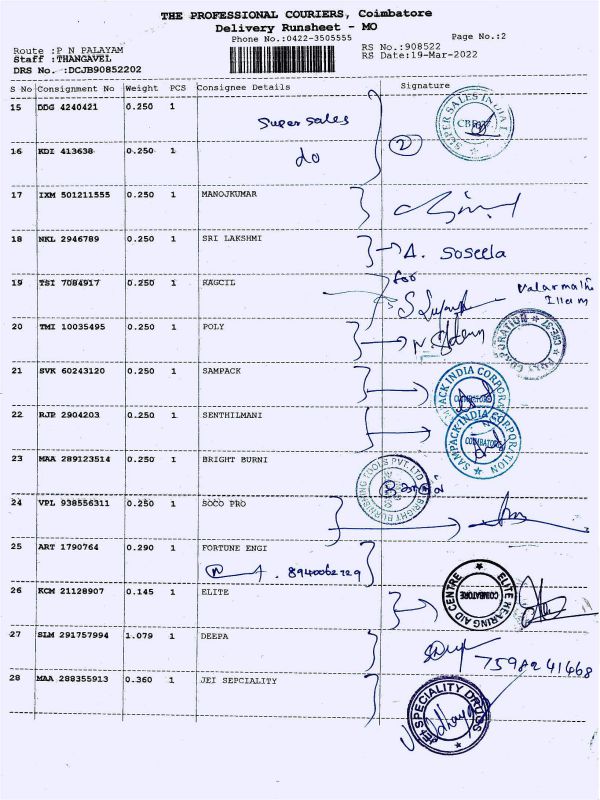 THE PROFESSIONAL COURIERS, Coimbatore
Delivery Runsheet - MO
Phone No.:0422-3505555
Page No.:2
Route :P N PALAYAM
RS No.:908522
Staff :THANGAVEL
RS Date:19-Mar-2022
DRS No. :DCJB90852202
S No Consignment No Weight PCS Consignee Details Signature
15 DDG 4240421 0.250 1
Super sales
SUPER SALES INDIA
CBE-37
16 KDI 413638 0.250 1
do
2
17 IXM 501211555 0.250 1 MANOJKUMAR
18 NKL 2946789 0.250 1 SRI LAKSHMI
A. Soseela
19 TSI 7084917 0.250 1 KAGCIL
for
20 TMI 10035495 0.250 1 POLY
POLY CORPORATION
CBE-37
21 SVK 60243120 0.250 1 SAMPACK
SAMPACK INDIA CORPORATION
COIMBATORE
22 RJP 2904203 0.250 1 SENTHILMANI
SAMPACK INDIA CORPORATION
COIMBATORE
23 MAA 289123514 0.250 1 BRIGHT BURNI
BRIGHT BURNISHING TOOLS PVT. LTD
24 VPL 938556311 0.250 1 SOCO PRO
25 ART 1790764 0.290 1 FORTUNE ENGI
8940062729
26 KCM 21128907 0.145 1 ELITE
ELITE HEARING AID CENTRE
COIMBATORE
27 SLM 291757994 1.079 1 DEEPA
7598241468
28 MAA 288355913 0.360 1 JEI SEPCIALITY
JEI SPECIALITY DRUGS